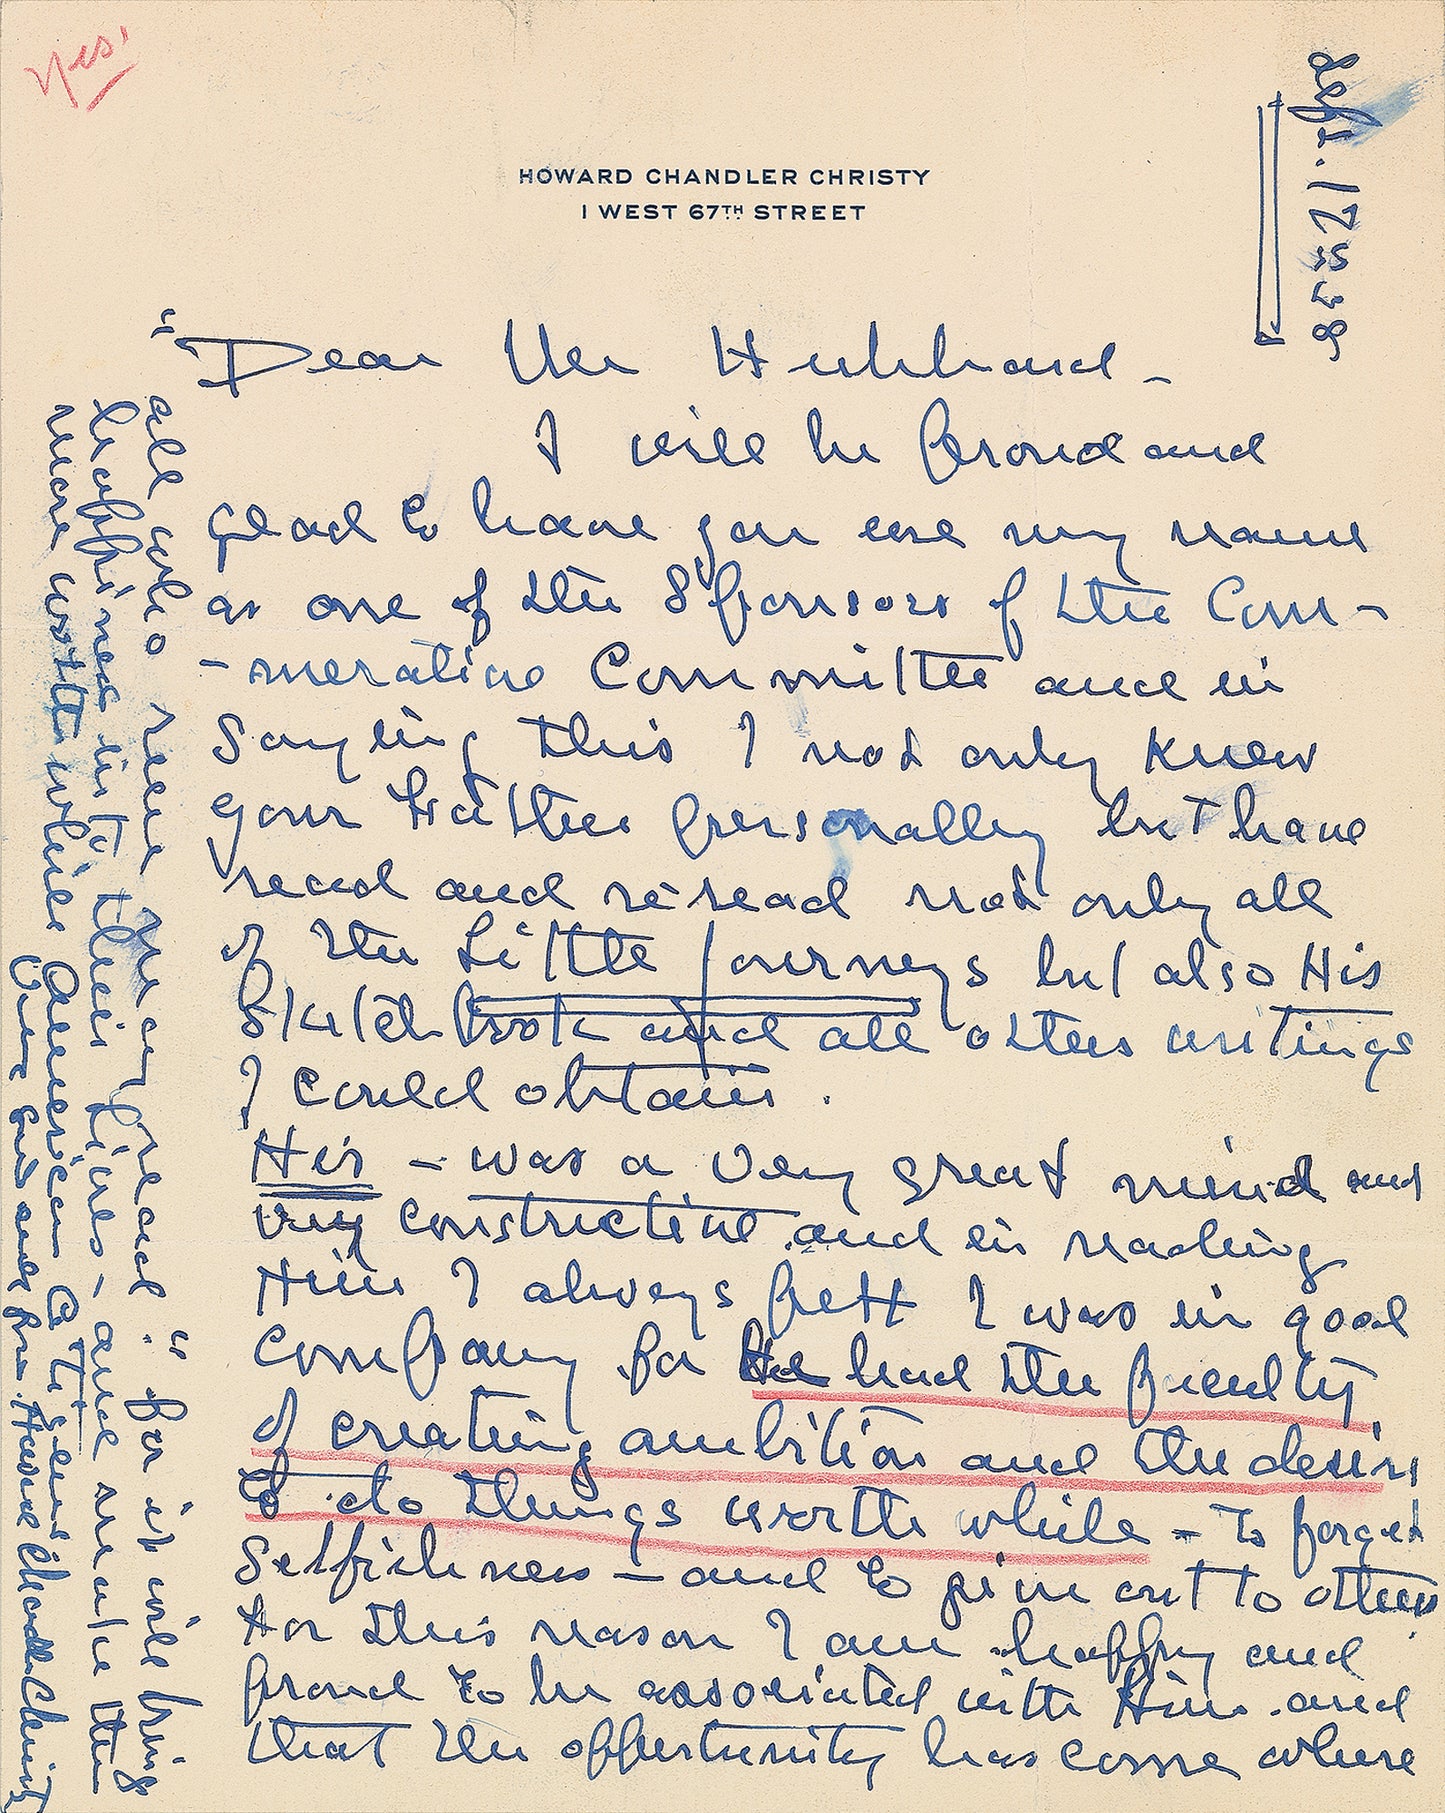 Yes!
Sept. 17 = 38
HOWARD CHANDLER CHRISTY
1 WEST 67TH STREET
"Dear Mr Hubbard –
I will be proud and
glad to have you use my name
as one of the Sponsors of the Com-
-merative Committee and in
saying this I not only knew
your Father personally but have
read and re-read not only all
of the Little Journeys but also His
Book and all others writings
I could obtain.
His – was a very great mind and
very constructive and in reading
Him I always felt I was in good
company for He had the faculty
of creating ambition and the desire
to do things worth while – to forget
selfishness – and to give out to others
For this reason I am happy and
proud to be associated with Him and
that the opportunity has come where
all who may read." For it will bring
happiness into their lives – and make them
more worth while American Citizens
Howard Chandler Christy